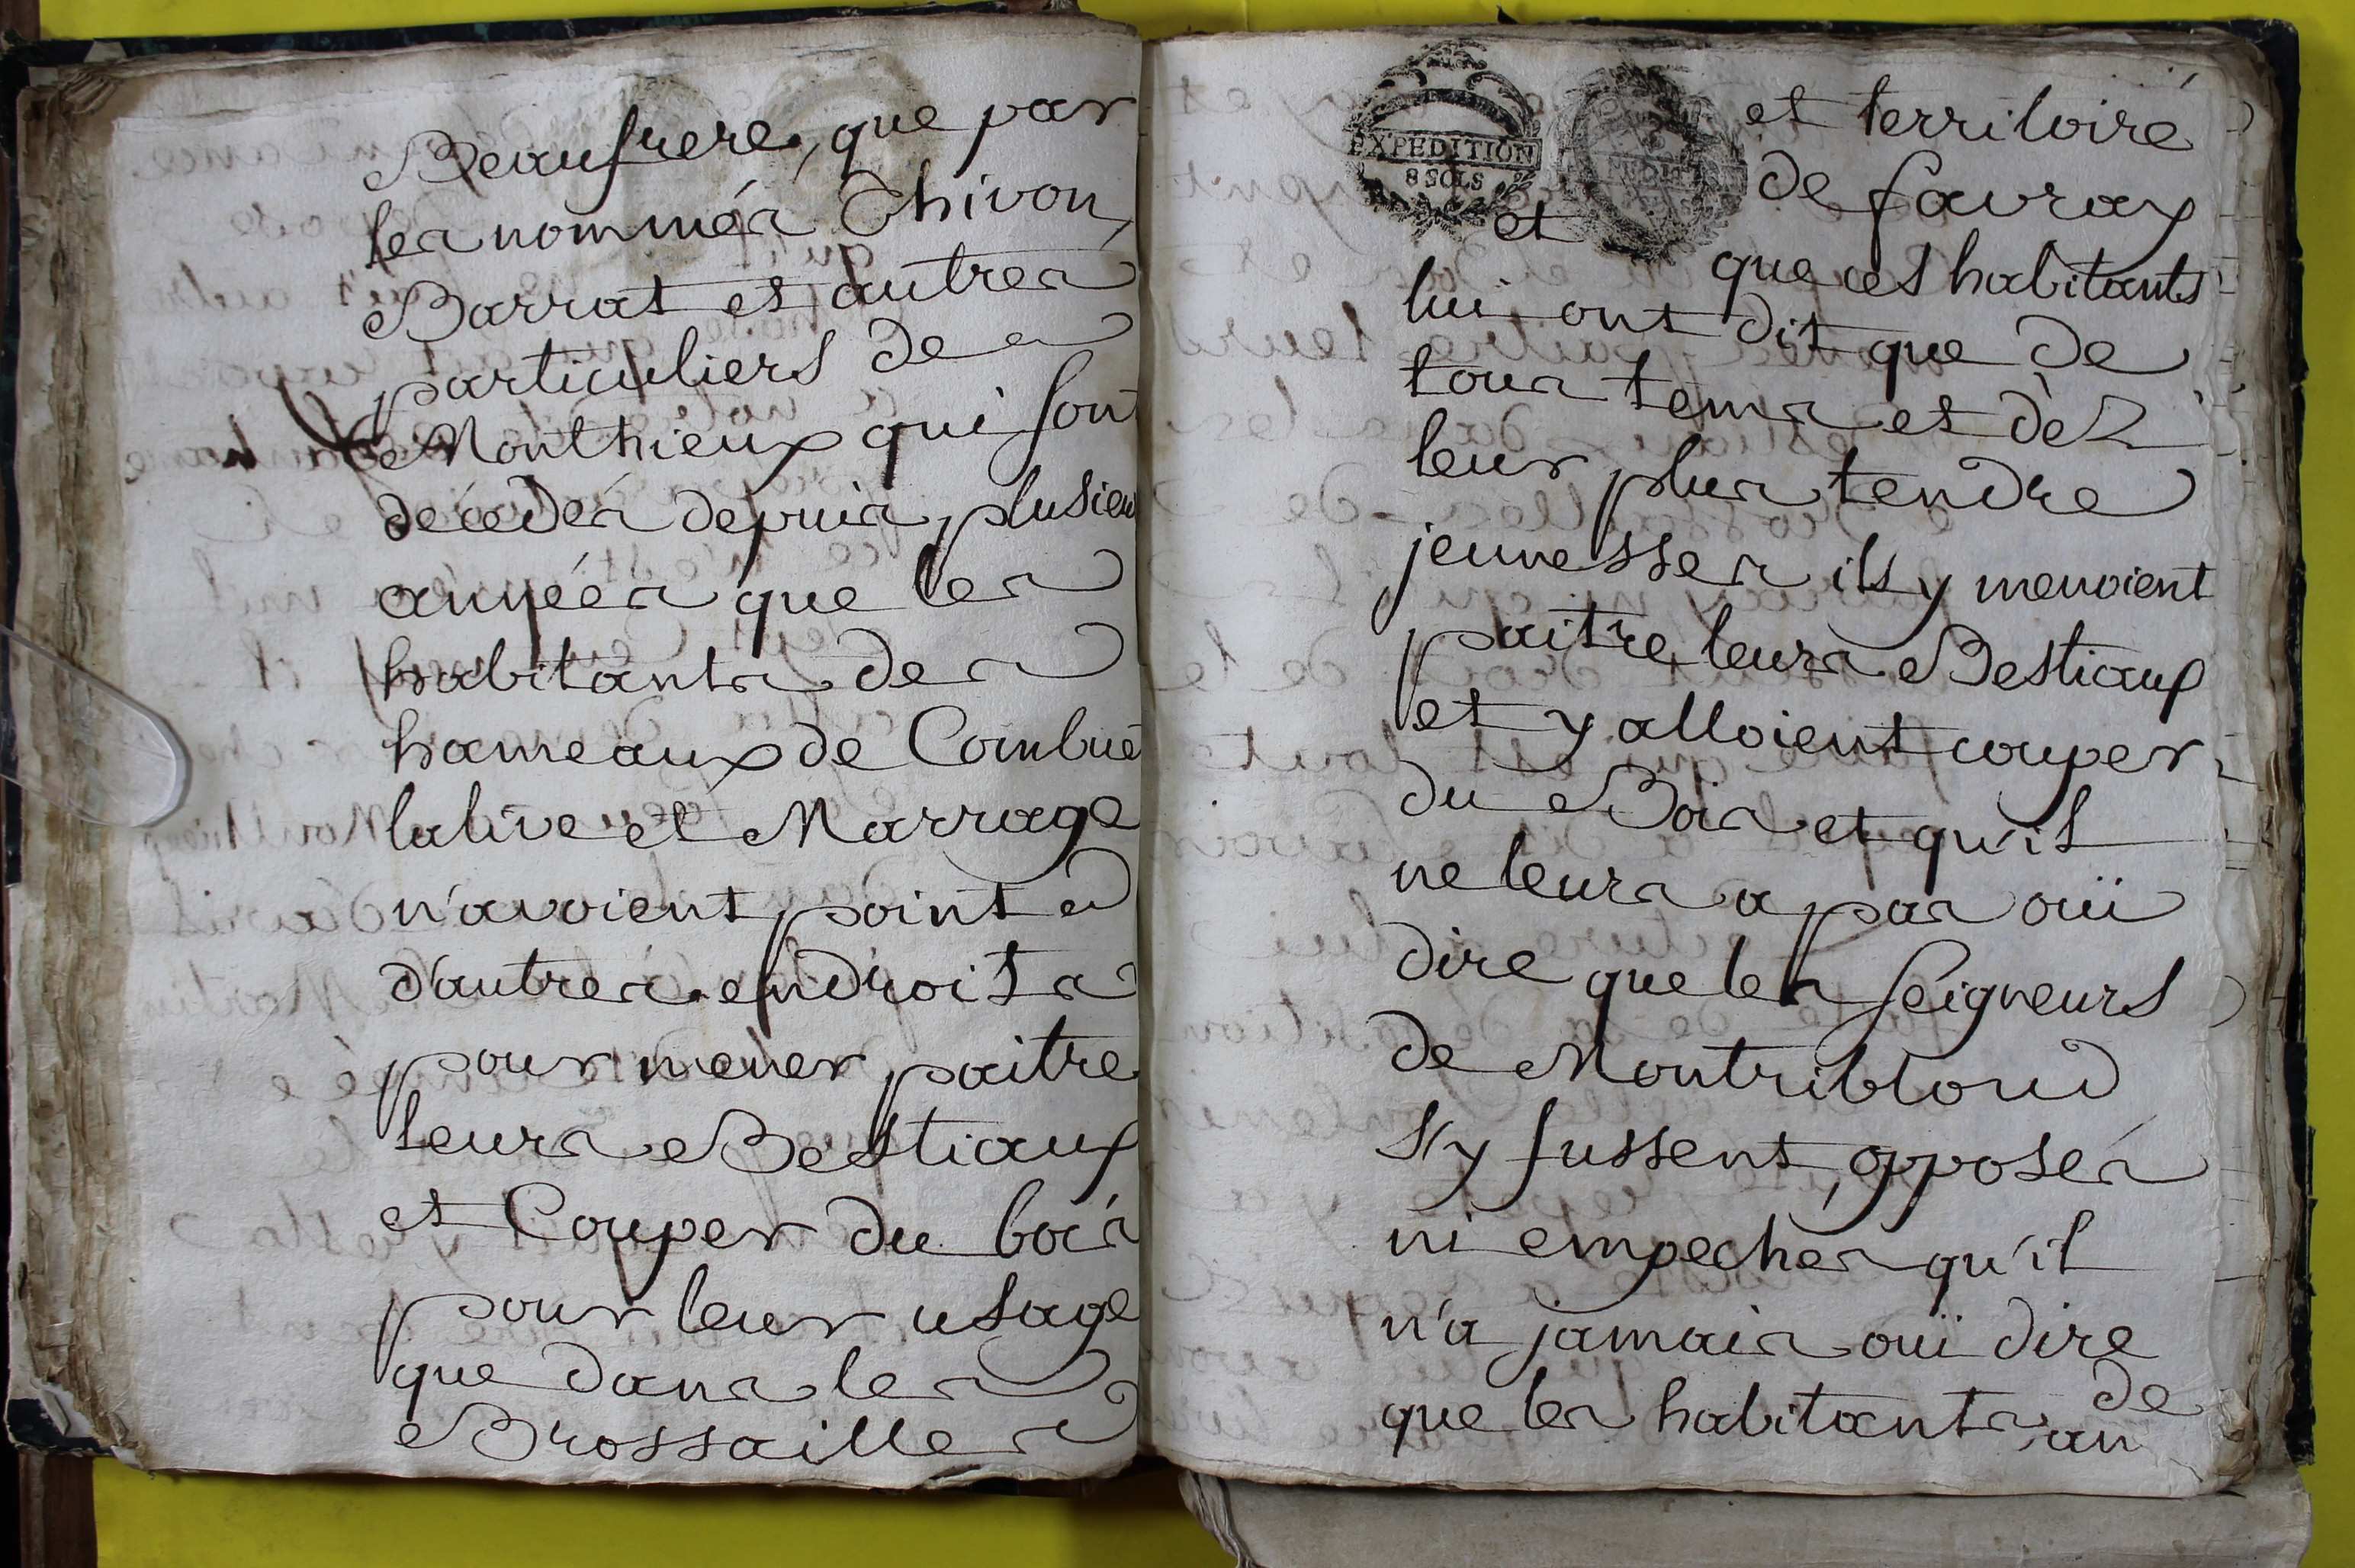 Beaufrere, que par
les nommés Chivon,
Barrat et autres
particuliers de
Monthieux qui sont
décédés depuis plusieu
années que les
habitants des
hameaux de Combue
lalive et Marrage
n'avoient point
d'autres endroits
pour mener paitre
leurs Bestiaux
et Couper du bois
pour leur usage
que dans les
Brossailles
EXPEDITION
8 SOLS
et territoire
de favray
et que ces habitants
lui ont dit que de
tous tems et dèz
leur plus tendre
jeunesses ils y menoient
paitre leurs Bestiaux
et y alloient couper
du Bois et qu'il
ne leurs a pas oüi
dire que les seigneurs
de Montribloud
s'y fussent opposés
ni empeches qu'il
n'a jamais oüi dire
que les habitants
de